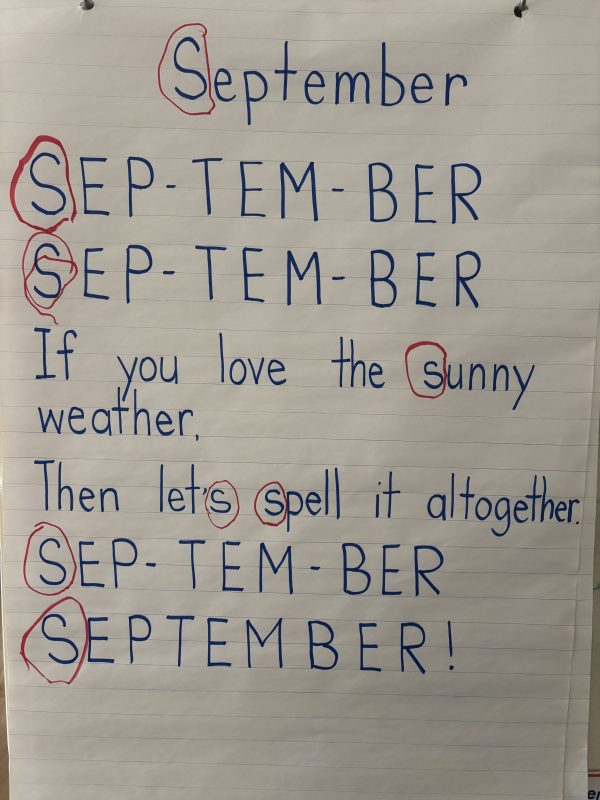 September
SEP-TEM-BER
SEP-TEM-BER
If you love the sunny
weather,
Then let's spell it altogether.
SEP-TEM-BER
SEPTEMBER!
er